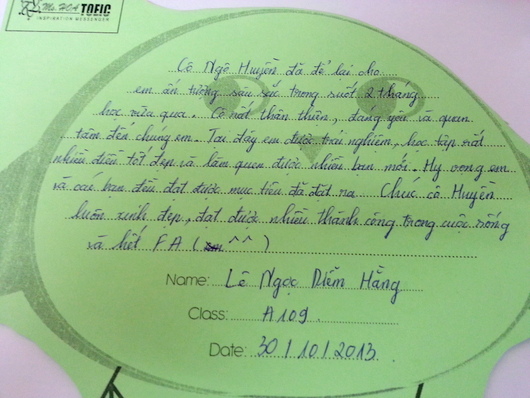 Ms. HOA TOEIC
INSPIRATION MESSENGER
Cô Ngô Huyền đã để lại cho
em ấn tượng sâu sắc trong suốt 2 tháng
học vừa qua. Cô rất thân thiện, đáng yêu và quan
tâm đến chúng em. Tại đây em được trải nghiệm, học tập rất
nhiều điều tốt đẹp và làm quen được nhiều bạn mới. Hy vọng em
và các bạn đều đạt được mục tiêu đã đặt ra. Chúc cô Huyền
luôn xinh đẹp, đạt được nhiều thành công trong cuộc sống
và hết FA ( ^^ )
Name: Lê Ngọc Diễm Hằng
Class: A109
Date: 30/10/2013